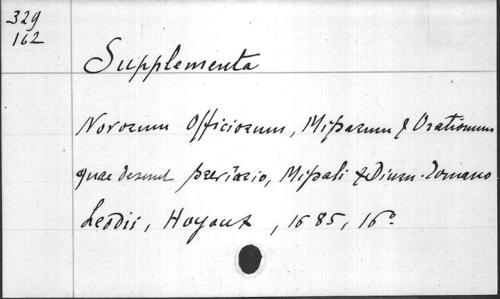 329
162
Supplementa
Novorum Officiorum, Missarum & Orationum
quae desunt breviario, Missali & Diurn. romano.
Leodii, Hoyoux, 1685, 16°